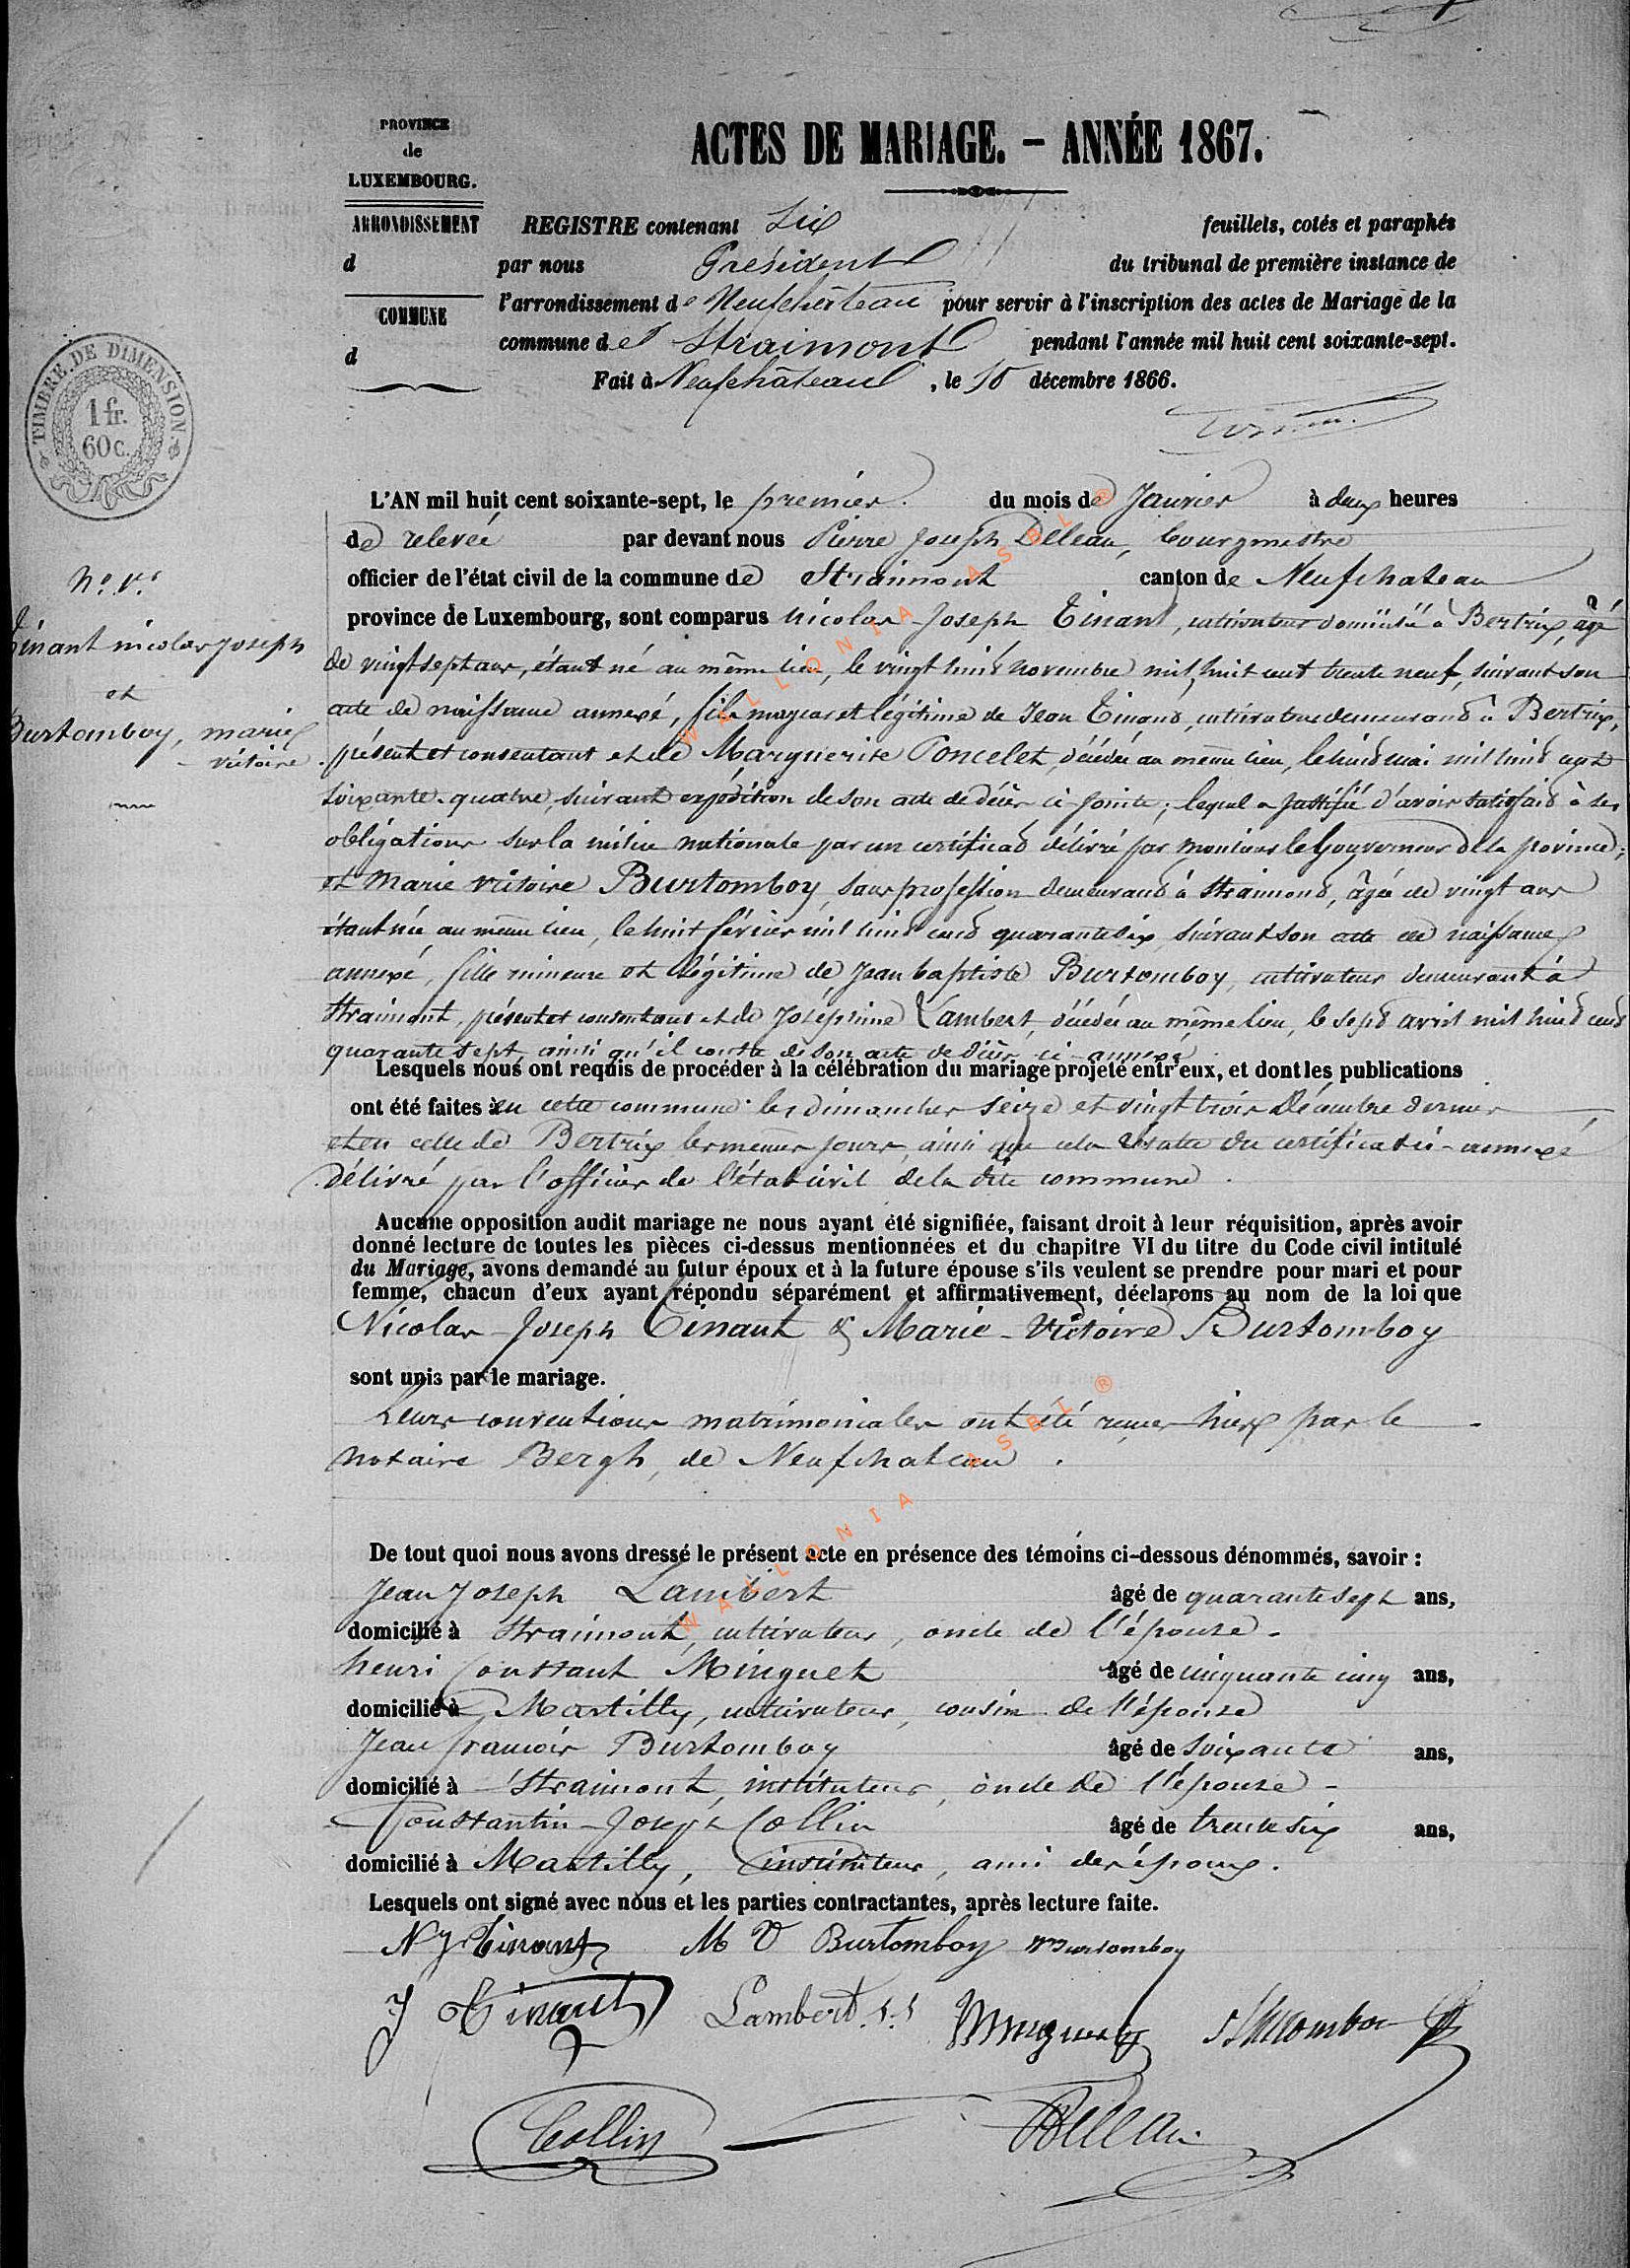 PROVINCE
de
LUXEMBOURG.
ARRONDISSEMENT
d
COMMUNE
d
ACTES DE MARIAGE. – ANNÉE 1867.
REGISTRE contenant Six feuillets, cotés et paraphés
par nous Président du tribunal de première instance de
l'arrondissement de Neufchâteau pour servir à l'inscription des actes de Mariage de la
commune de Straimont pendant l'année mil huit cent soixante-sept.
Fait à Neufchâteau, le 10 décembre 1866.
TIMBRE DE DIMENSION
1 fr.
60 c.
L'AN mil huit cent soixante-sept, le premier du mois de Janvier à deux heures
de relevée par devant nous Pierre Joseph Delleau, bourgmestre
officier de l'état civil de la commune de Straimont canton de Neufchateau
province de Luxembourg, sont comparus Nicolas-Joseph Tinant, cultivateur domicilié à Bertrix, âgé
de vingt sept ans, étant né au même lieu, le vingt huit novembre mil huit cent trente neuf, suivant son
acte de naissance annexé, fils majeur et légitime de Jean Tinant, cultivateur demeurant à Bertrix,
présent et consentant et de Marguerite Poncelet, décédée au même lieu, le huit mai mil huit cent
soixante-quatre, suivant expédition de son acte de décès ci-jointe; lequel a justifié d'avoir satisfait à ses
obligations sur la milice nationale par un certificat délivré par monsieur le Gouverneur de la province;
et Marie Victoire Burtomboy, sans profession demeurant à Straimont, âgée de vingt ans
étant née au même lieu, le huit février mil huit cent quarante six suivant son acte de naissance
annexé, fille mineure et légitime de Jean baptiste Burtomboy, cultivateur demeurant à
Straimont, présent et consentant et de Joséphine Lambert, décédée au même lieu, le sept avril mil huit cent
quarante sept, ainsi qu'il conste de son acte de décès ci-annexé
N° 1er
Tinant nicolas joseph
et
Burtomboy, marie
victoire
Lesquels nous ont requis de procéder à la célébration du mariage projeté entr'eux, et dont les publications
ont été faites en cette commune les dimanches seize et vingt trois Décembre dernier
et en celle de Bertrix les mêmes jours, ainsi que cela résulte du certificat ci-annexé
délivré par l'officier de l'état civil de la dite commune.
Aucune opposition audit mariage ne nous ayant été signifiée, faisant droit à leur réquisition, après avoir
donné lecture de toutes les pièces ci-dessus mentionnées et du chapitre VI du titre du Code civil intitulé
du Mariage, avons demandé au futur époux et à la future épouse s'ils veulent se prendre pour mari et pour
femme, chacun d'eux ayant répondu séparément et affirmativement, déclarons au nom de la loi que
Nicolas-Joseph Tinant & Marie-Victoire Burtomboy
sont unis par le mariage.
Leurs conventions matrimoniales ont été reçues hier par le
notaire Bergh, de Neufchateau.
De tout quoi nous avons dressé le présent acte en présence des témoins ci-dessous dénommés, savoir :
Jean Joseph Lambert âgé de quarante sept ans,
domicilié à Straimont, cultivateur, oncle de l'épouse.
henri Constant Minguet âgé de cinquante cinq ans,
domicilié à Martilly, cultivateur, cousin de l'épouse
Jean françois Burtomboy âgé de soixante ans,
domicilié à Straimont, instituteur, oncle de l'épouse
Constantin-Joseph Collin âgé de trente six ans,
domicilié à Martilly, instituteur, ami des époux.
Lesquels ont signé avec nous et les parties contractantes, après lecture faite.
N J Tinant M V Burtomboy Burtomboy
J Tinant Lambert J.J Minguet
Collin Delleau
WALLONIA ASBL ®
WALLONIA ASBL ®